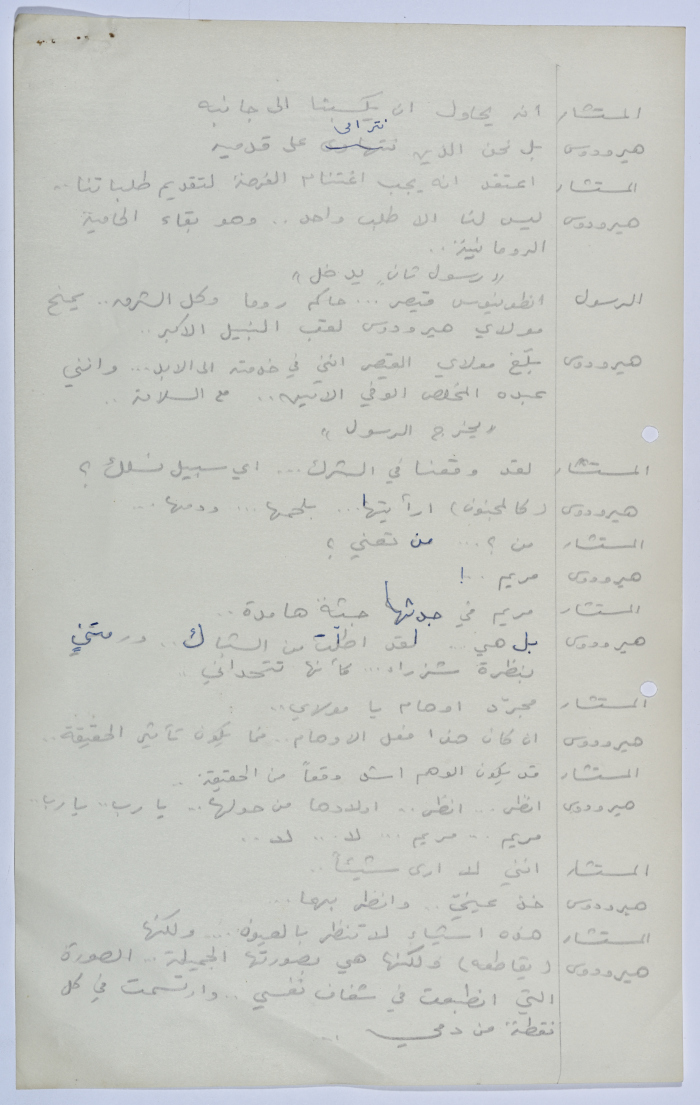 المستشار انه يحاول ان يكسبنا الى جانبه
هيرودوس بل نحن الذين نترامى على قدميه
المستشار اعتقد انه يجب اغتنام الفرصة لتقديم طلباتنا..
هيرودوس ليس لنا الا طلب واحد .. وهو بقاء الحامية
الرومانية ..
"رسول ثانٍ يدخل"
الرسول انطونيوس قيصر ... حاكم روما وكل الشرق .. يمنح
مولاي هيرودوس لقب النبيل الاكبر ..
هيرودوس بلّغ مولاي القيصر انني في خدمته الى الابد ... وانني
عبده المخلص الوفي الامين .. مع السلامة ..
"يخرج الرسول"
المستشار لقد وقعنا في الشرك ... اي سبيل نسلك ؟
هيرودوس (كالمجنون) ارأيتها ... بلحمها ... ودمها ...
المستشار من ؟ ... من تعني ؟
هيرودوس مريم .. !
المستشار مريم في جدثها جثة هامدة ..
هيرودوس بل هي ... لقد اطلّت من الشباك .. ورمتني
بنظرة شزراء ... كأنها تتحداني ..
المستشار مجرّد اوهام يا مولاي ..
هيرودوس ان كان هذا فعل الاوهام .. فما يكون تأثير الحقيقة ..
المستشار قد يكون الوهم اشد وقعاً من الحقيقة ..
هيرودوس انظر ... انظر .. اولادها من حولها .. يا رب .. يا رب ..
مريم .. مريم ... لا ... لا ..
المستشار انني لا ارى شيئاً ..
هيرودوس خذ عينيّ .. وانظر بهما ..
المستشار هذه اشياء لا تنظر بالعيون ... ولكنها
هيرودوس (يقاطعه) ولكنها هي بصورتها الجميلة .. الصورة
التي انطبعت في شغاف نفسي .. وارتسمت في كل
نقطة من دمي ..